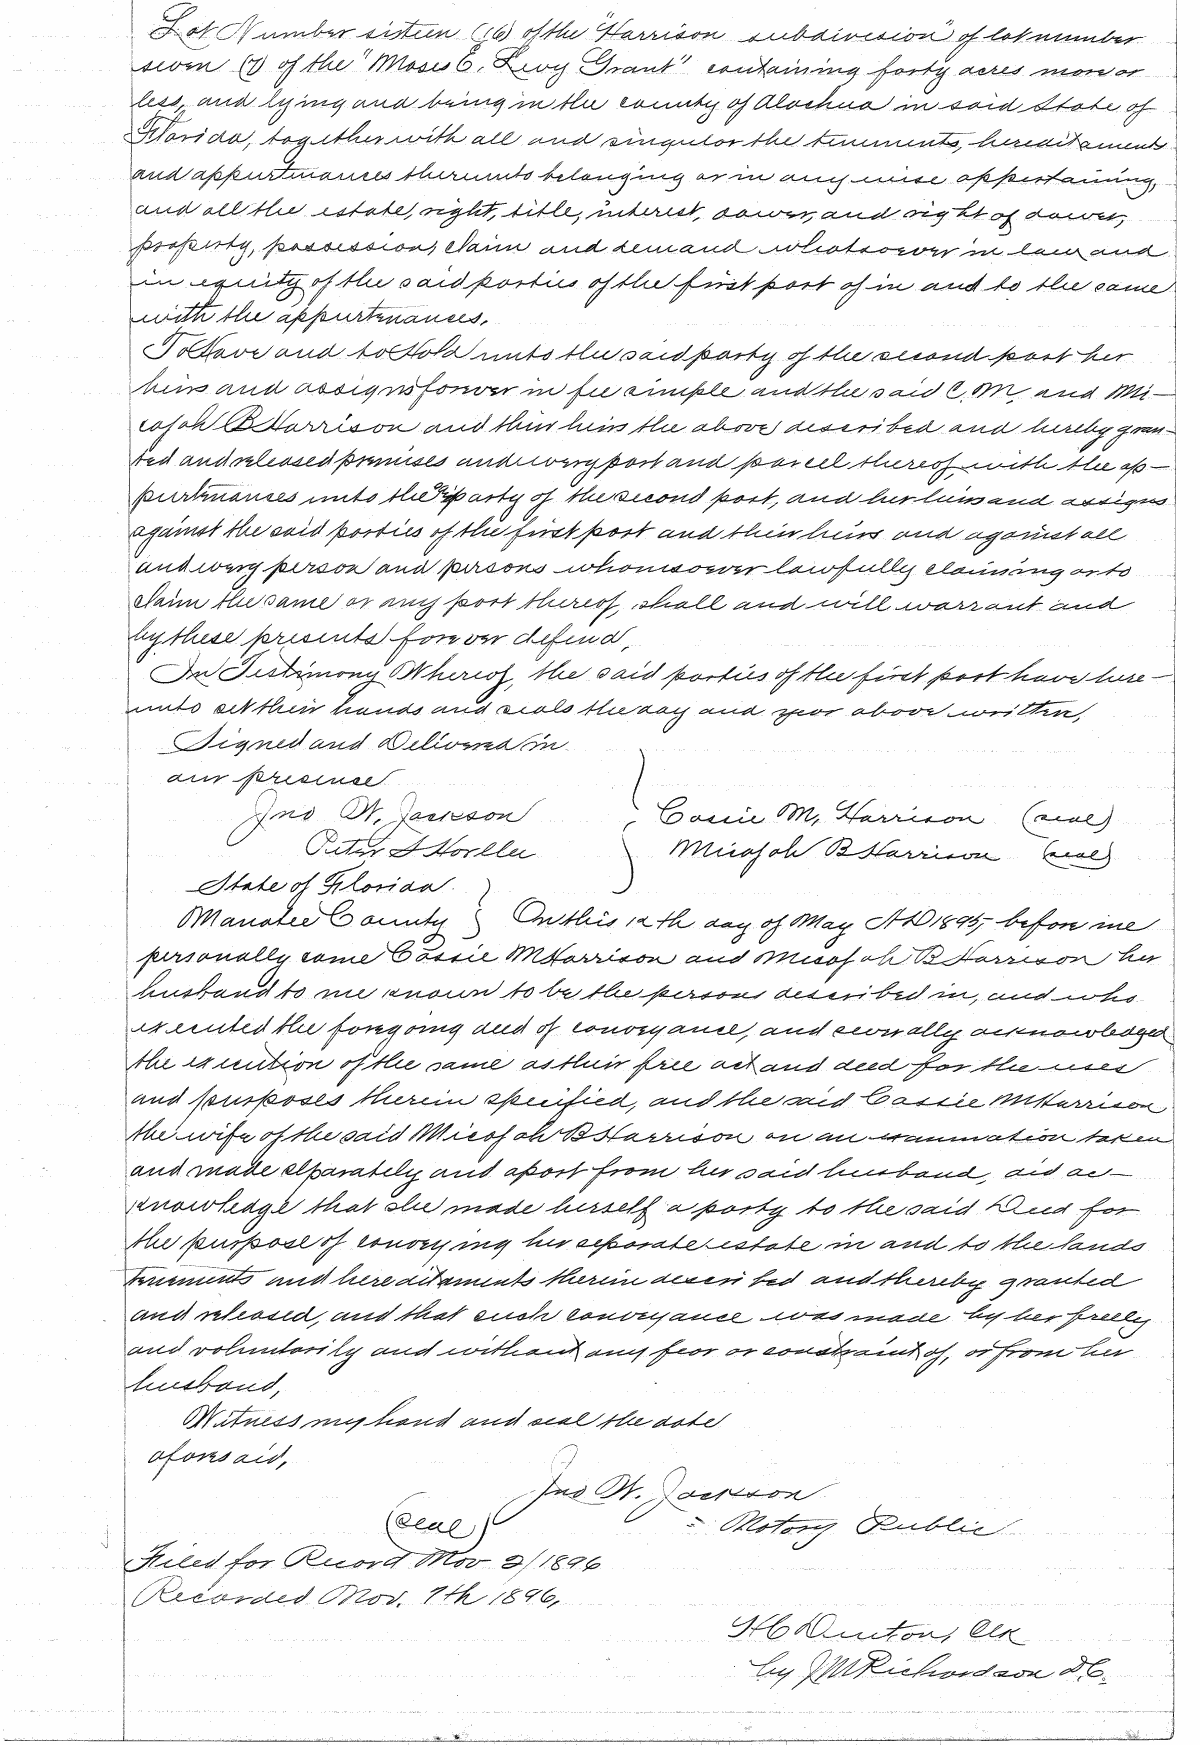 Lot Number sixteen (16) of the "Harrison subdivision" of lot number
seven (7) of the "Moses E. Levy Grant" containing forty acres more or
less, and lying and being in the county of Alachua in said State of
Florida, together with all and singular the tenements, hereditaments
and appurtenances thereunto belonging or in any wise appertaining,
and all the estate, right, title, interest, dower, and right of dower,
property, possession, claim and demand whatsoever in law and
in equity of the said parties of the first part of in and to the same
with the appurtenances.
To Have and to Hold unto the said party of the second part her
heirs and assigns forever in fee simple and the said C. M. and Mi-
cajah B Harrison and their heirs the above described and hereby gran-
ted and released premises and every part and parcel thereof, with the ap-
purtenances unto the party of the second part, and her heirs and assigns
against the said parties of the first part and their heirs and against all
and every person and persons whomsoever lawfully claiming or to
claim the same or any part thereof, shall and will warrant and
by these presents forever defend,
In Testimony Whereof, the said parties of the first part have here-
unto set their hands and seals the day and year above written,
Signed and Delivered in
our presence
Jno W. Jackson Cassie M, Harrison (seal)
Peter Micajah B Harrison (seal)
State of Florida
Manatee County On this 12th day of May AD 1895, before me
personally came Cassie M Harrison and Micajah B Harrison her
husband to me known to be the persons described in, and who
executed the foregoing deed of conveyance, and severally acknowledged
the execution of the same as their free act and deed for the uses
and purposes therein specified, and the said Cassie M Harrison
the wife of the said Micajah B Harrison on an examination taken
and made separately and apart from her said husband, did ac-
knowledge that she made herself a party to the said Deed for
the purpose of conveying her separate estate in and to the lands
tenements and hereditaments therein described and thereby granted
and released, and that such conveyance was made by her freely
and voluntarily and without any fear or constraint of, or from her
husband,
Witness my hand and seal the date
aforesaid,
Jno W. Jackson
(seal) Notary Public
Filed for Record Nov 2/1896
Recorded Nov. 7th 1896,
H C Denton, Clk
by J M Richardson D.C.